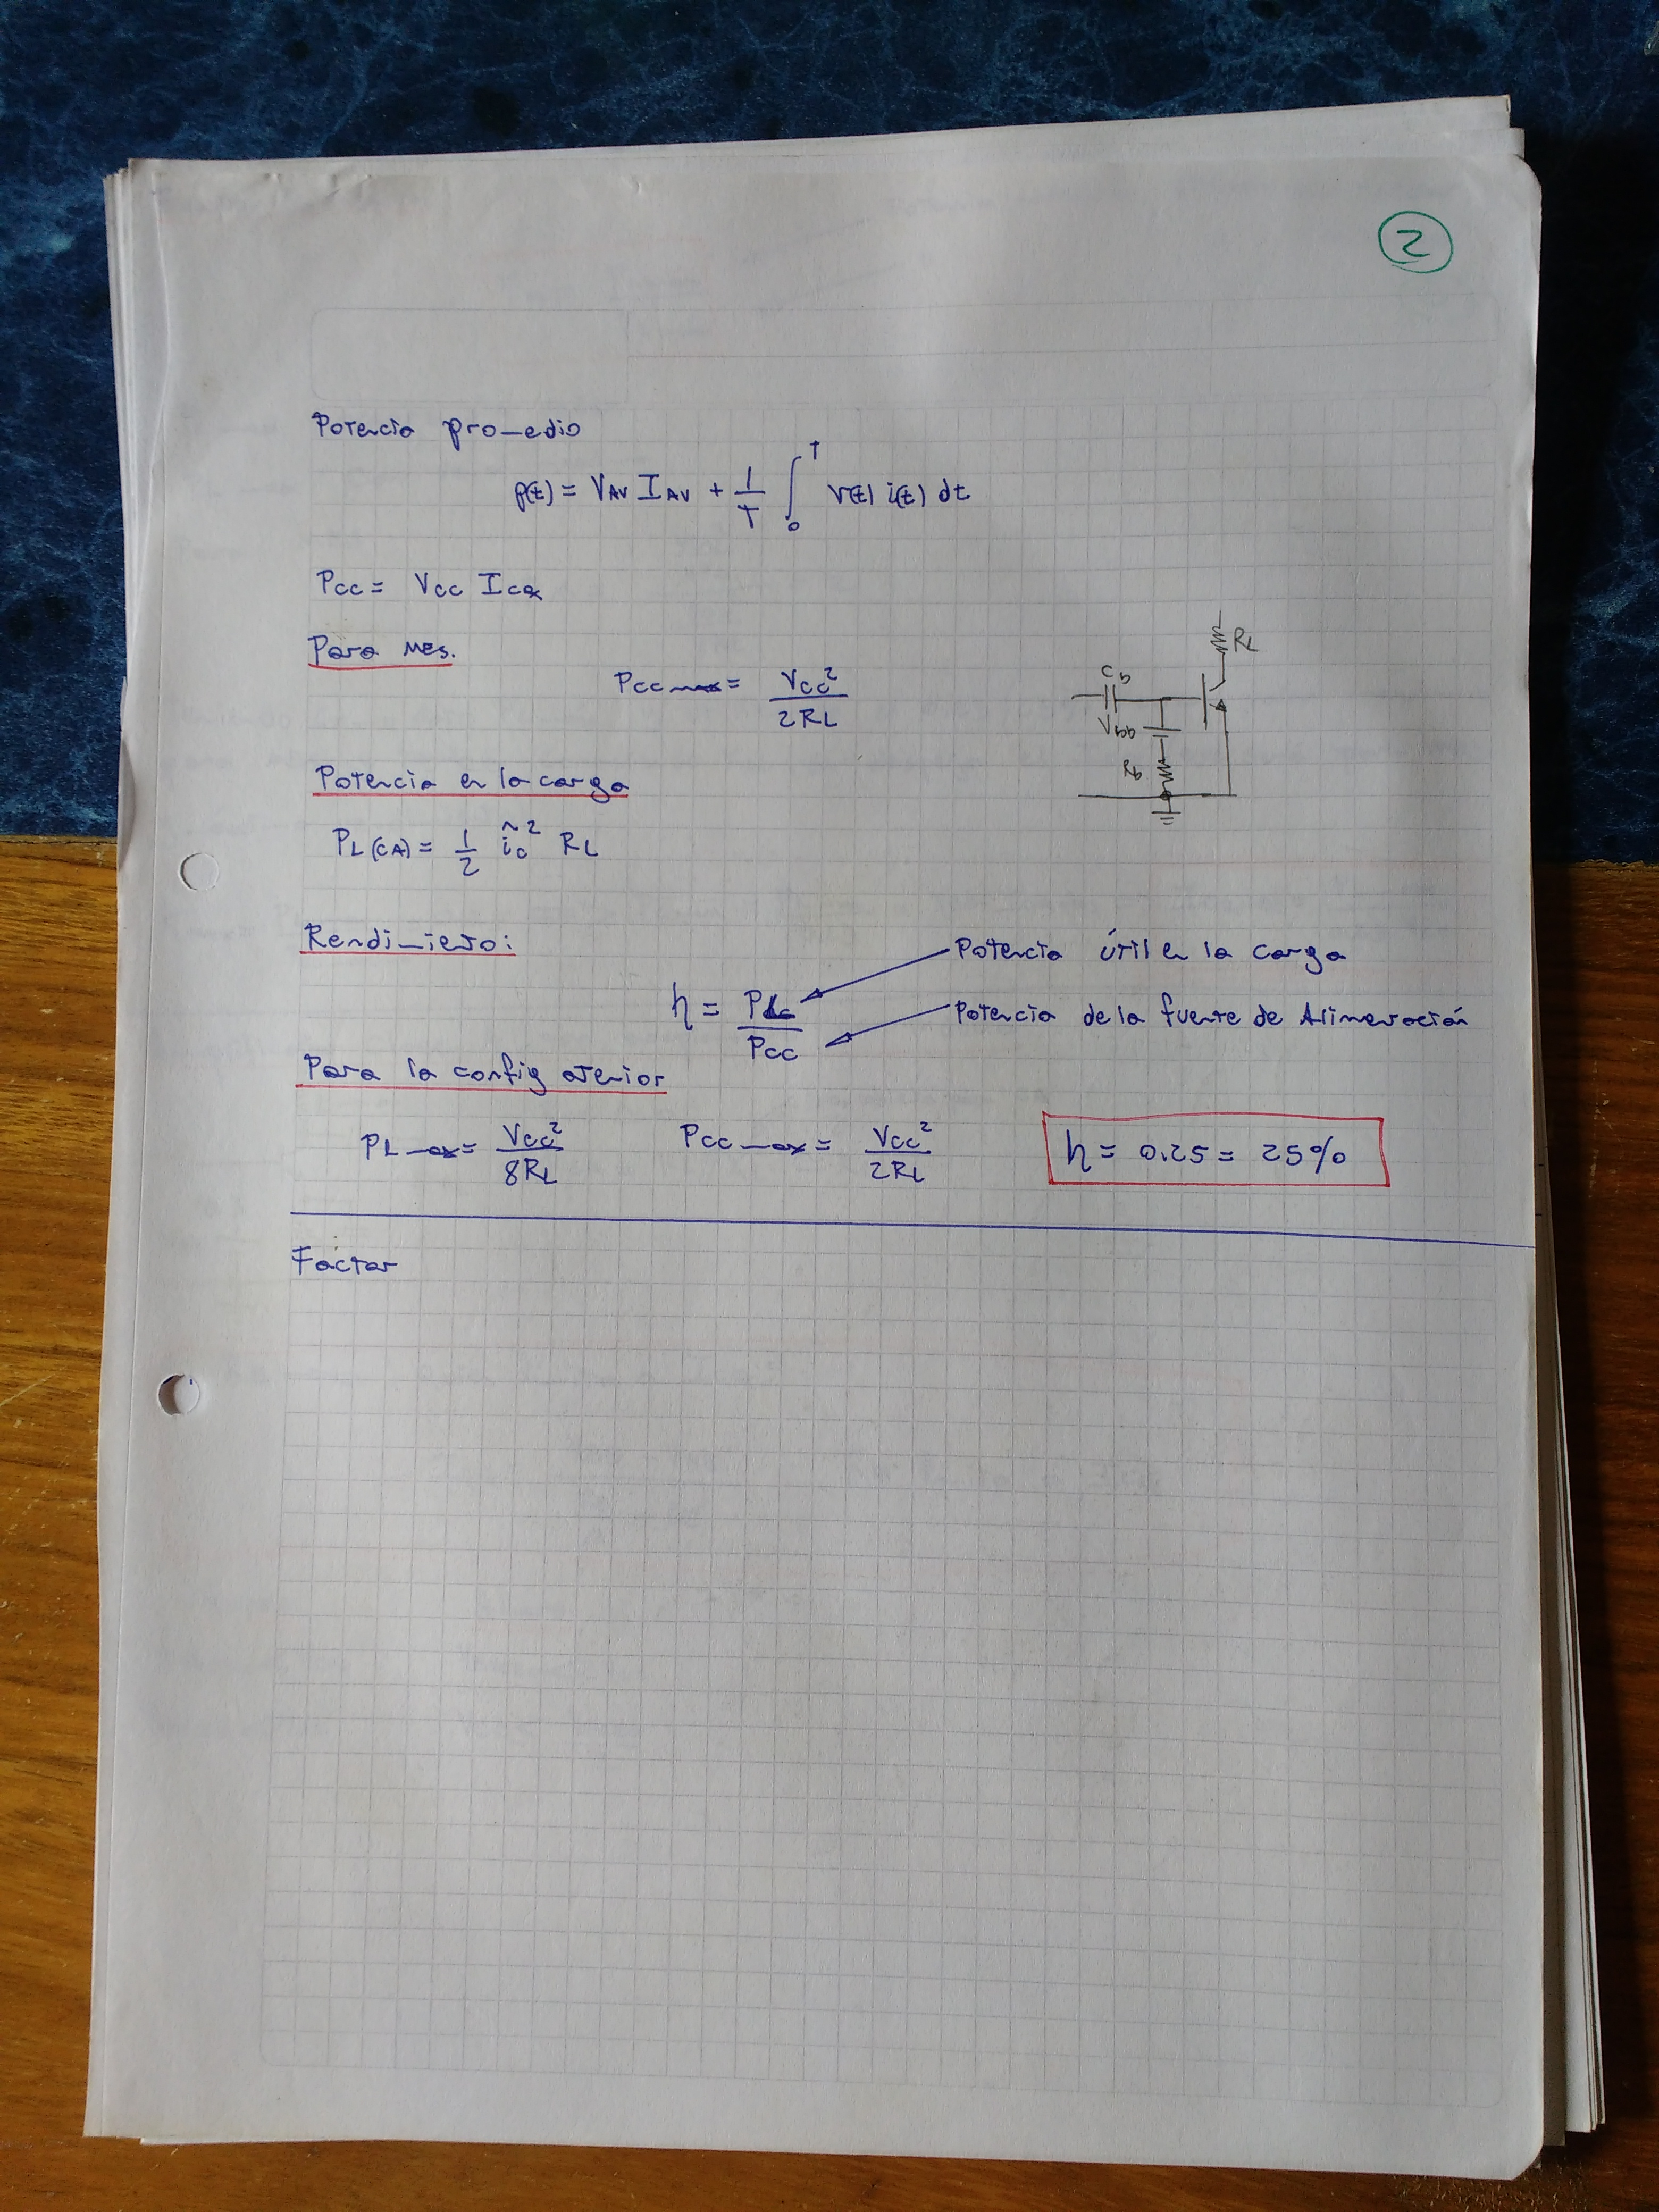 2
Potencia promedio
p(t) = VAV IAV + 1/T ∫₀ᵀ v(t) i(t) dt
Pcc = Vcc Icq
Para MES.
Pcc max = Vcc²/2RL
RL
Cb
Vbb
Rb
Potencia en la carga
PL(CA) = 1/2 îc² RL
Rendimiento:
Potencia útil en la carga
η = PL/Pcc
Potencia de la fuente de Alimentación
Para la config anterior
PL max = Vcc²/8RL Pcc max = Vcc²/2RL η = 0.25 = 25%
Factor